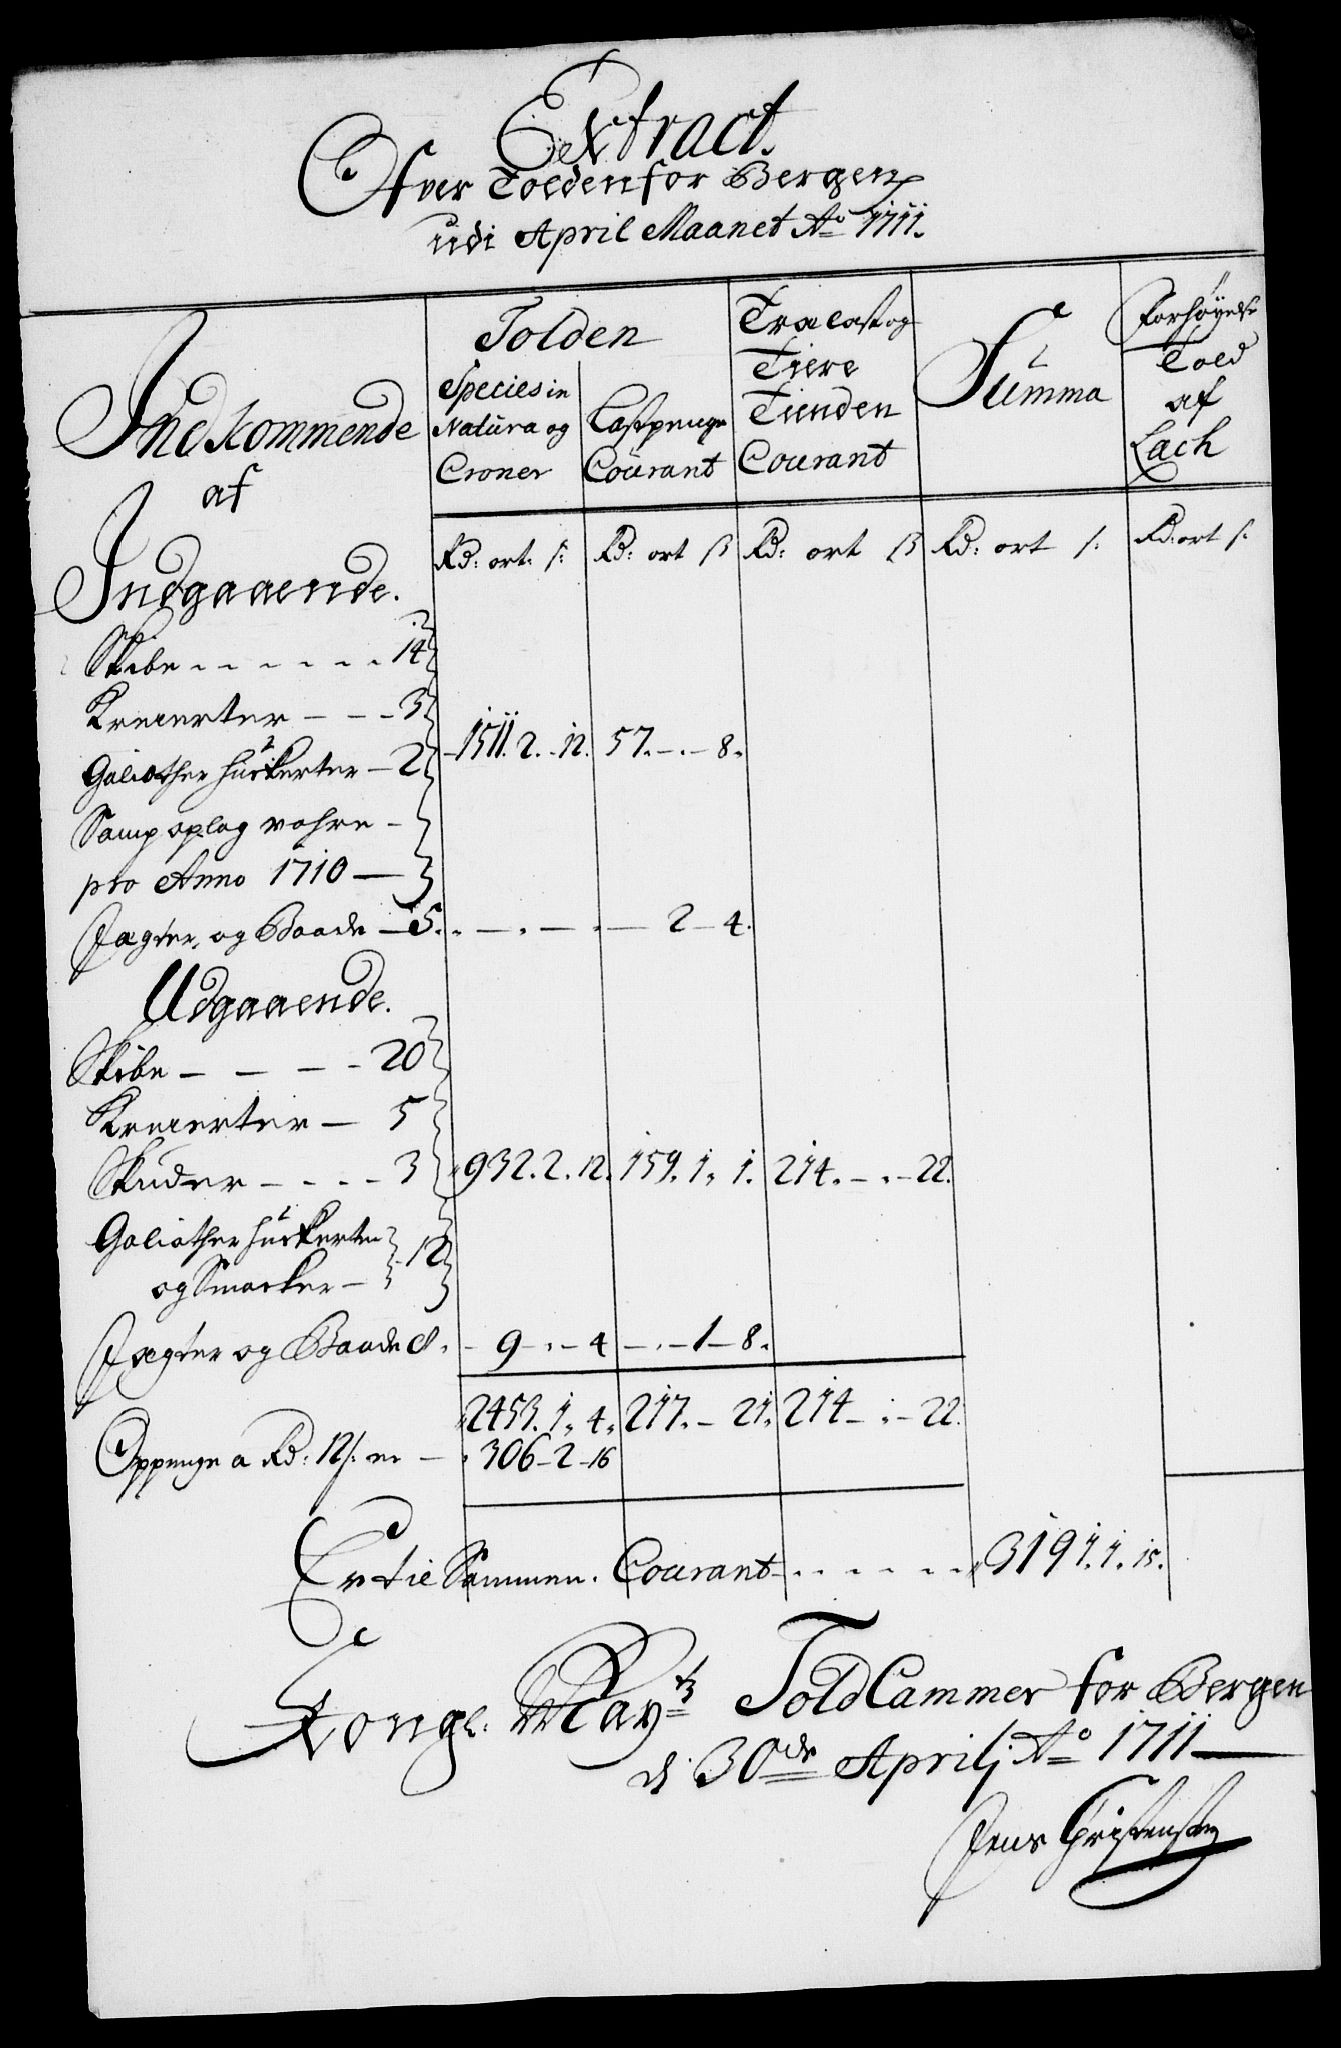 Extract.
Ofver Tolden for Bergen
udi April Maanet Ao 1711.
Indkommende
af
Tolden
Species in
Natura og
Croner
Lastpenge
Courant
Træelast og
Tiere
Tienden
Courant
Summa
Forhøyelse
Told
af
Lach
Rd: ort: s: Rd: ort ß Rd: ort ß Rd: ort s: Rd: ort s:
Indgaaende.
Skibe 14
Kreierter 3
Galiother huckerter 2 1511. 2. 12. 57. - 8.
Samp oplag vahre
pro Anno 1710
Jagter og Baade 5. 2 4.
Udgaaende.
Skibe 20
Kreierter 5
Skuder 3 932. 2. 12. 159. 1. 1. 214. - 22.
Galiother huckerter
og Smacker 12
Jægter og Baade 8. 9 - 4 - 1 - 8.
2453. 1. 4. 217. - 21. 214 - 22.
Oppenge a Rd: 12 s: er 306 - 2 - 16
Er tilsammen Courant 3191. 1. 15.
Kongl. Mayts Told Cammer for Bergen
d: 30de Aprilj Ao 1711
Jens Christensen